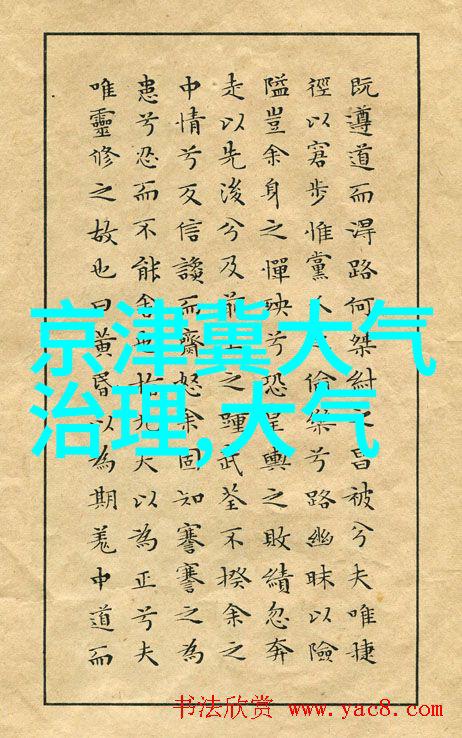 既遵道而淂路何桀紂之昌被兮夫唯捷
徑以窘步惟黨人偷樂兮路幽昧以險
隘豈余身之憚殃兮恐皇輿之敗績忽奔
走以先後兮及前王之踵武荃不揆余之
中情兮反信讒而齌怒余固知謇謇之為
患兮忍而不能舍也指九天以為正兮夫
唯靈修之故也曰黃昏以為期羌中道而
京津冀大气
治理,大气
书法欣赏 www.yac8.com